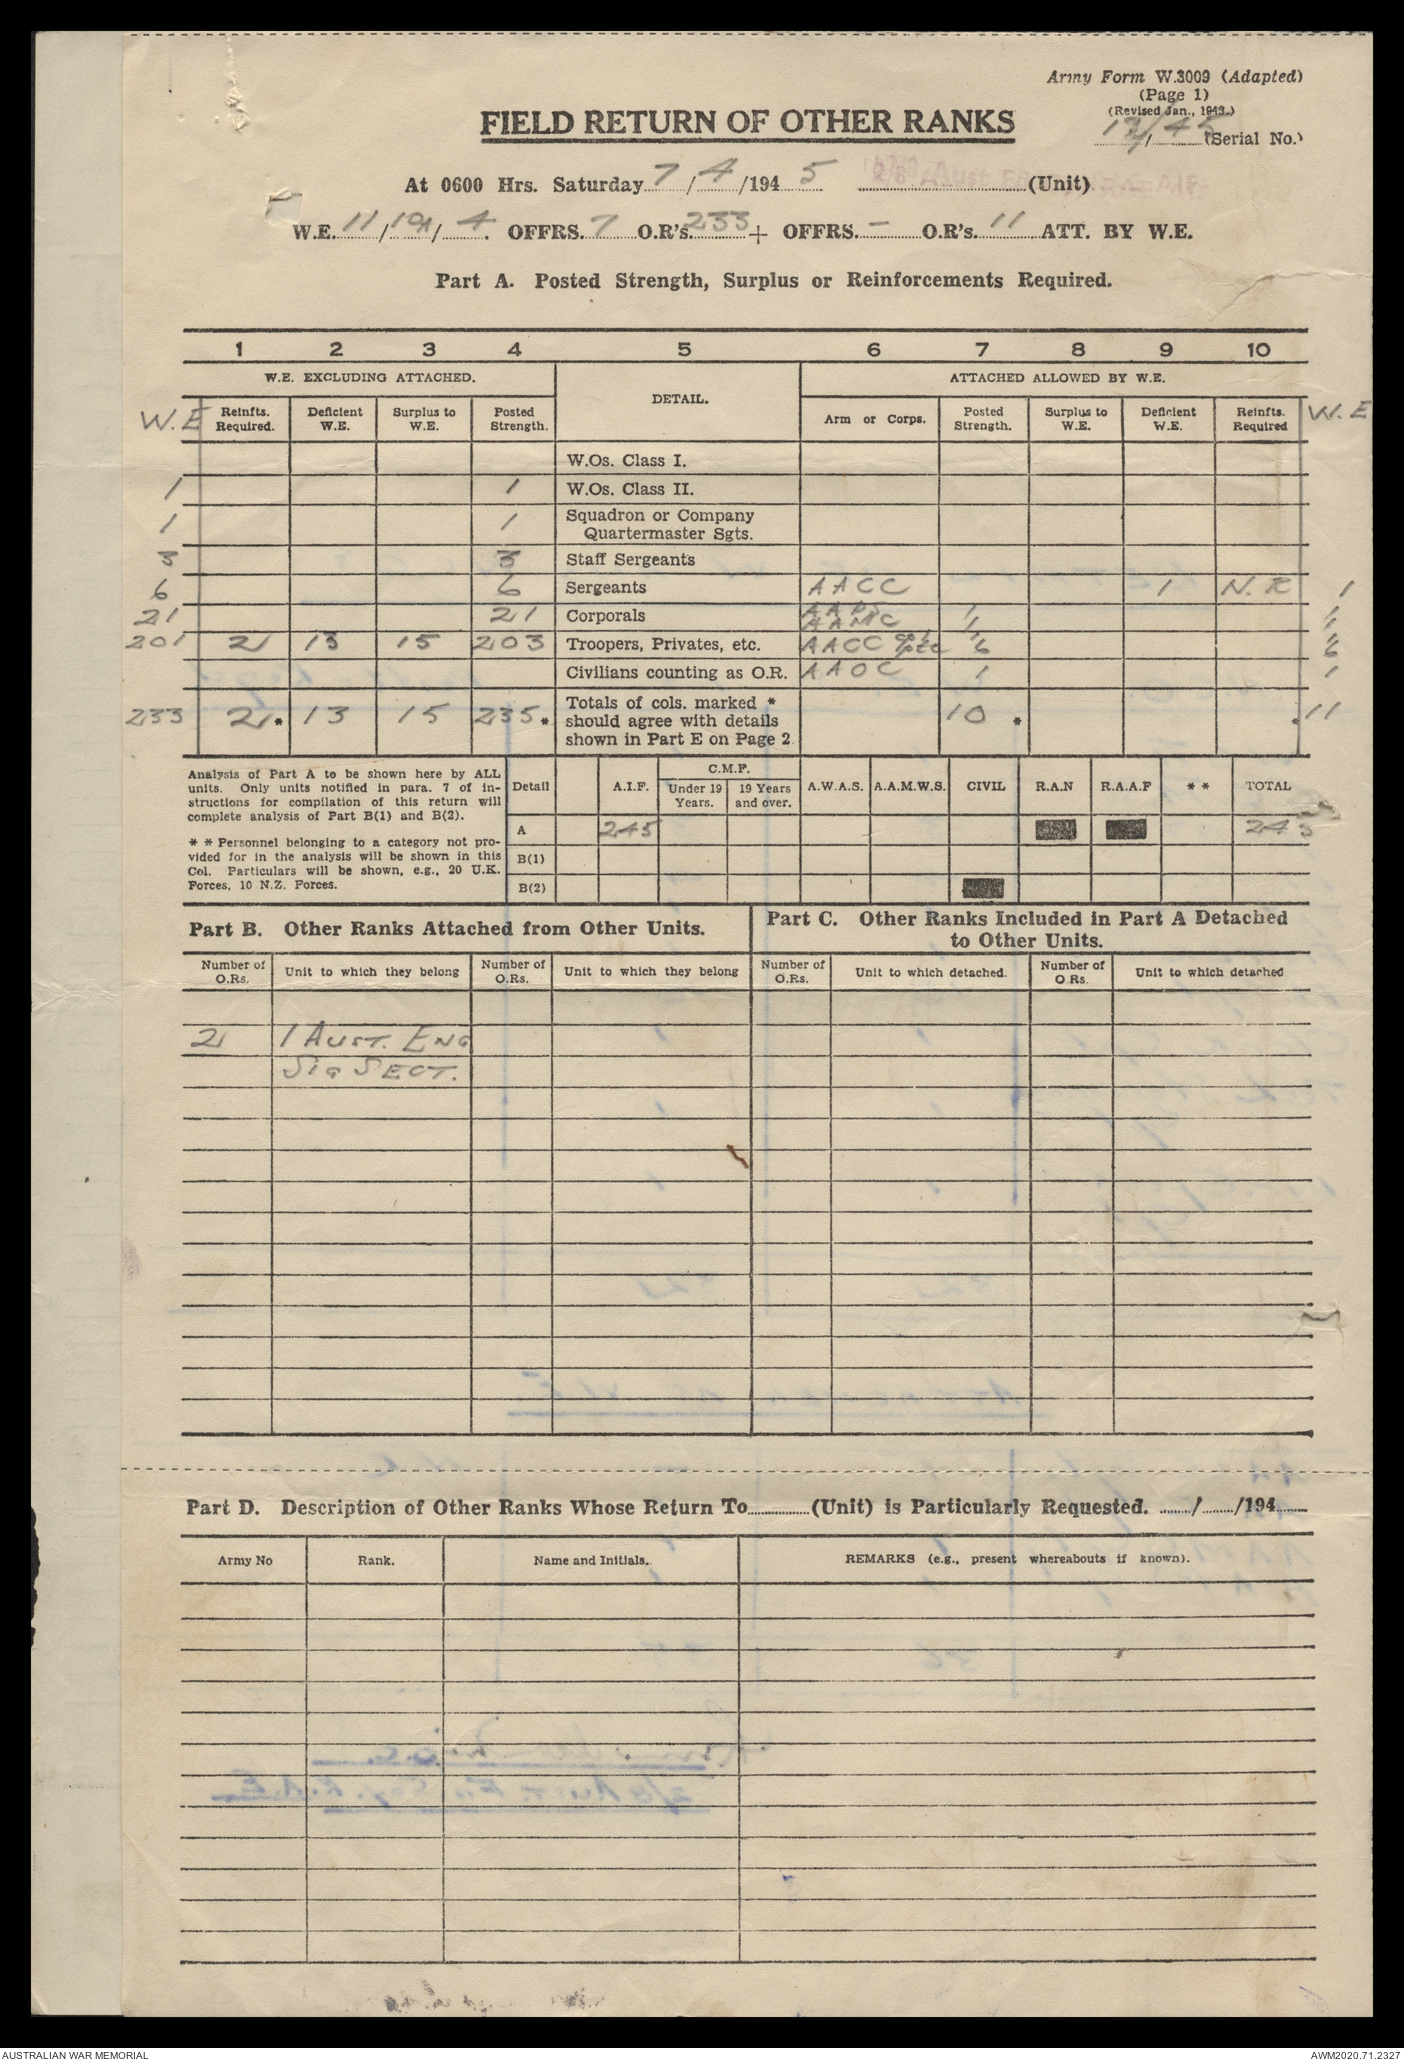 Army Form W.3009 (Adapted)
(Page 1)
(Revised Jan., 1943.)
FIELD RETURN OF OTHER RANKS
(Serial No.)
At 0600 Hrs. Saturday 7/4/1945 (Unit)
W.E. 11/10A/4. OFFRS. 7 O.R's. 233 + OFFRS. - O.R's. 11 ATT. BY W.E.
Part A. Posted Strength, Surplus or Reinforcements Required.
1 2 3 4 5 6 7 8 9 10
W.E. EXCLUDING ATTACHED. DETAIL. ATTACHED ALLOWED BY W.E.
W.E Reinfts. Required. Deficient W.E. Surplus to W.E. Posted Strength. Arm or Corps. Posted Strength. Surplus to W.E. Deficient W.E. Reinfts. Required W.E
W.Os. Class I.
1 1 W.Os. Class II.
1 1 Squadron or Company
Quartermaster Sgts.
3 3 Staff Sergeants
6 6 Sergeants AACC 1 N.R 1
21 21 Corporals 1 1
AAMC 1 1
201 2 13 15 203 Troopers, Privates, etc. AACC 6 6
Civilians counting as O.R. AAOC 1 1
233 2* 13 15 235* Totals of cols. marked * 10 * * 11
should agree with details
shown in Part E on Page 2.
Analysis of Part A to be shown here by ALL
units. Only units notified in para. 7 of in-
structions for compilation of this return will
complete analysis of Part B(1) and B(2).
* * Personnel belonging to a category not pro-
vided for in the analysis will be shown in this
Col. Particulars will be shown, e.g., 20 U.K.
Forces, 10 N.Z. Forces.
C.M.F.
Detail A.I.F. Under 19 Years. 19 Years and over. A.W.A.S. A.A.M.W.S. CIVIL R.A.N R.A.A.F * * TOTAL
A 245 245
B(1)
B(2)
Part B. Other Ranks Attached from Other Units.
Part C. Other Ranks Included in Part A Detached
to Other Units.
Number of O.Rs. Unit to which they belong Number of O.Rs. Unit to which they belong Number of O.Rs. Unit to which detached. Number of O.Rs. Unit to which detached
2 1 AUST. ENG
SIG SECT.
Part D. Description of Other Ranks Whose Return To (Unit) is Particularly Requested. / /194
Army No Rank. Name and Initials. REMARKS (e.g., present whereabouts if known).
AUSTRALIAN WAR MEMORIAL
AWM2020.71.2327